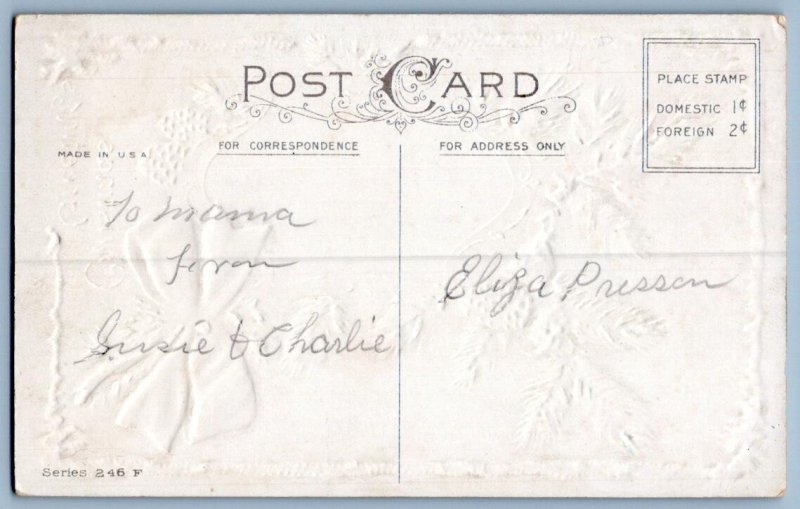 POST CARD
PLACE STAMP
DOMESTIC 1¢
FOREIGN 2¢
MADE IN U.S.A.
FOR CORRESPONDENCE
FOR ADDRESS ONLY
To Mama
from
Susie & Charlie
Eliza Presson
Series 246 F